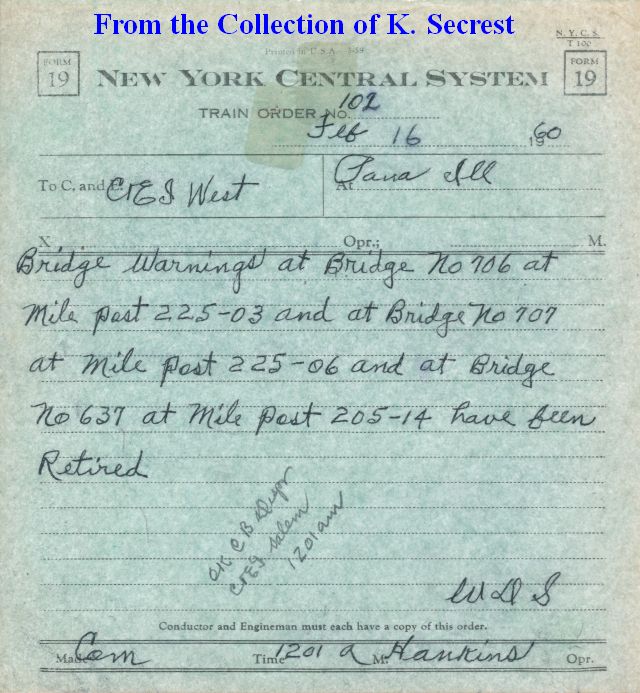 From the Collection of K. Secrest
N. Y. C. S.
T 100
Printed in U.S.A. 3-59
FORM
19
NEW YORK CENTRAL SYSTEM
FORM
19
TRAIN ORDER No. 102
Feb 16 1960
To C. and E. C&EI West
At Pana Ill
X Opr.; M.
Bridge Warnings at Bridge No 706 at
Mile post 225-03 and at Bridge No 707
at Mile Post 225-06 and at Bridge
No 637 at Mile Post 205-14 have been
Retired
OK C B
C&EI Salem
1201 am
W D S
Conductor and Engineman must each have a copy of this order.
Made Com Time 1201 A M. Hankins Opr.